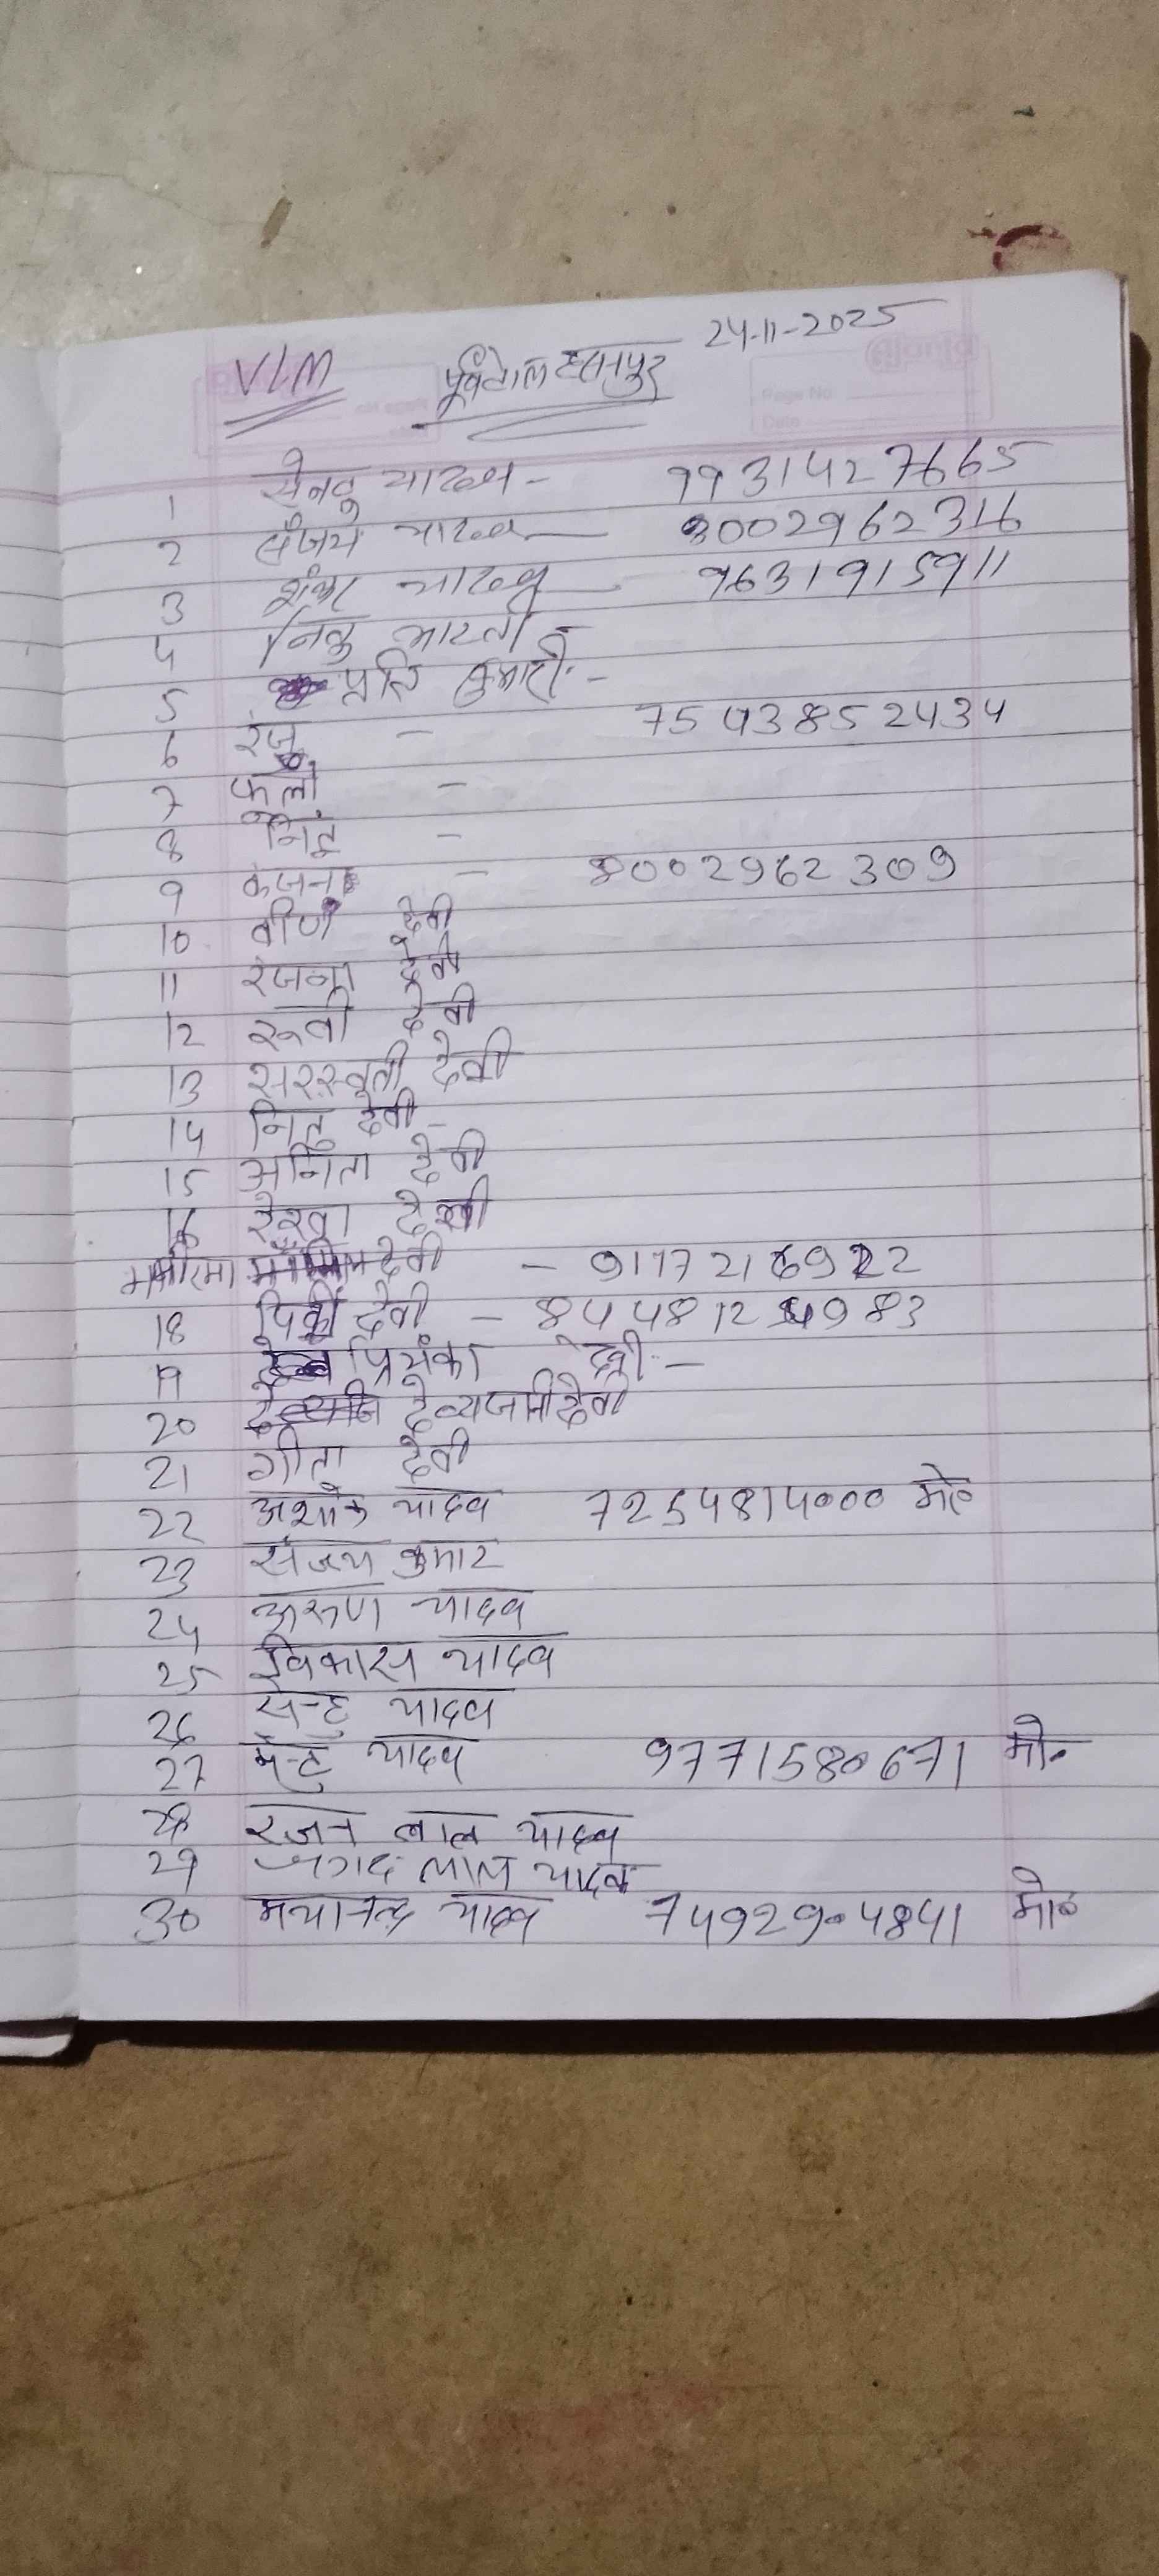 VLM पूर्वटोल हसनपुर 24-11-2025
1 सेनटु यादव - 9931427665
2 संजय यादव - 8002962316
3 शंकर यादव - 9631915911
4 निकु भारती -
5 प्रति कुमारी -
6 रंजु - 7543852434
7 फुलो -
8 निटु -
9 कंजना - 8002962309
10 वीणा देवी
11 रंजना देवी
12 रूबी देवी
13 सरस्वती देवी
14 नितु देवी -
15 अनिता देवी
16 रेखा देवी
मनोरमा देवी - 9117216922
18 पिंकी देवी -
19 प्रियंका देवी -
20 देव्यजानी देवी
21 गीता देवी
22 अशोक यादव 7254814000 मो०
23 संजय कुमार
24 अरूण यादव
25 विकास यादव
26 सेन्टु यादव
27 मेन्टु यादव 9771580671 मो०
28 रंजन लाल यादव
29 लाल यादव
30 मयानन्द यादव 7492904841 मो०